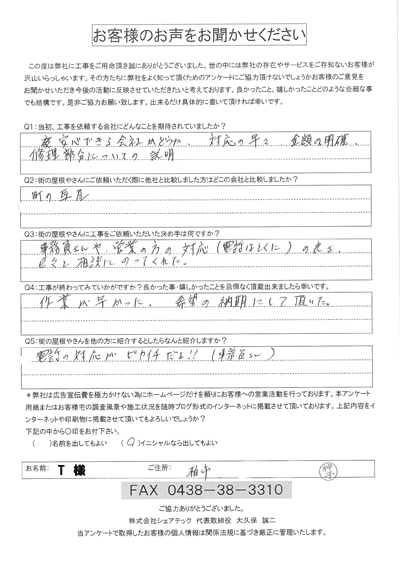 お客様のお声をお聞かせください
この度は弊社に工事をご用命頂き誠にありがとうございました。世の中には弊社の存在やサービスをご存知ないお客様が
沢山いらっしゃいます。その方たちに弊社をよく知って頂くためのアンケートにご協力頂けないでしょうかお客様のご意見を
お聞かせいただき今後の活動に反映させていただきたいと考えております。良かったこと、嬉しかったことどのような些細な事
でも結構です。是非ご協力お願い致します。出来るだけ具体的に書いて頂ければ幸いです。
Q1:当初、工事を依頼する会社にどんなことを期待されていましたか?
安心できる会社かどうか、対応の早さ、金額の明確、
修理部分についての説明
Q2:街の屋根やさんにご依頼いただく際に他社と比較しました方はどこの会社と比較しましたか?
町の瓦屋
Q3:街の屋根やさんに工事をご依頼いただいた決め手は何ですか?
事務員さんや、営業の方の対応(電話はとくに)の良さ、
色々と相談にのってくれた。
Q4:工事が終わってみていかがですか?良かった事・嬉しかったことを忌憚なく頂戴出来ましたら幸いです。
作業が早かった、希望の納期にして頂いた。
Q5:街の屋根やさんを他の方に紹介するとしたらなんと紹介しますか?
電話の対応がピカイチだよ!!(事務員さん)
*弊社は広告宣伝費を極力かけない為にホームページだけを頼りにお客様への営業活動を行っております。本アンケート
用紙またはお客様宅の調査風景や施工状況を随時ブログ形式のインターネットに掲載させて頂いております。上記内容をイン
ターネットや印刷物に掲載させて頂いてもよろしいでしょうか?
下記の中から〇印をお付下さい。
( )名前を出してもよい (〇)イニシャルなら出してもよい
お名前: T 様 ご住所: 柏市
FAX 0438-38-3310
ご協力ありがとうございました。
株式会社シェアテック 代表取締役 大久保 誠二
当アンケートで取得したお客様の個人情報は関係法規に基づき厳正に管理いたします。